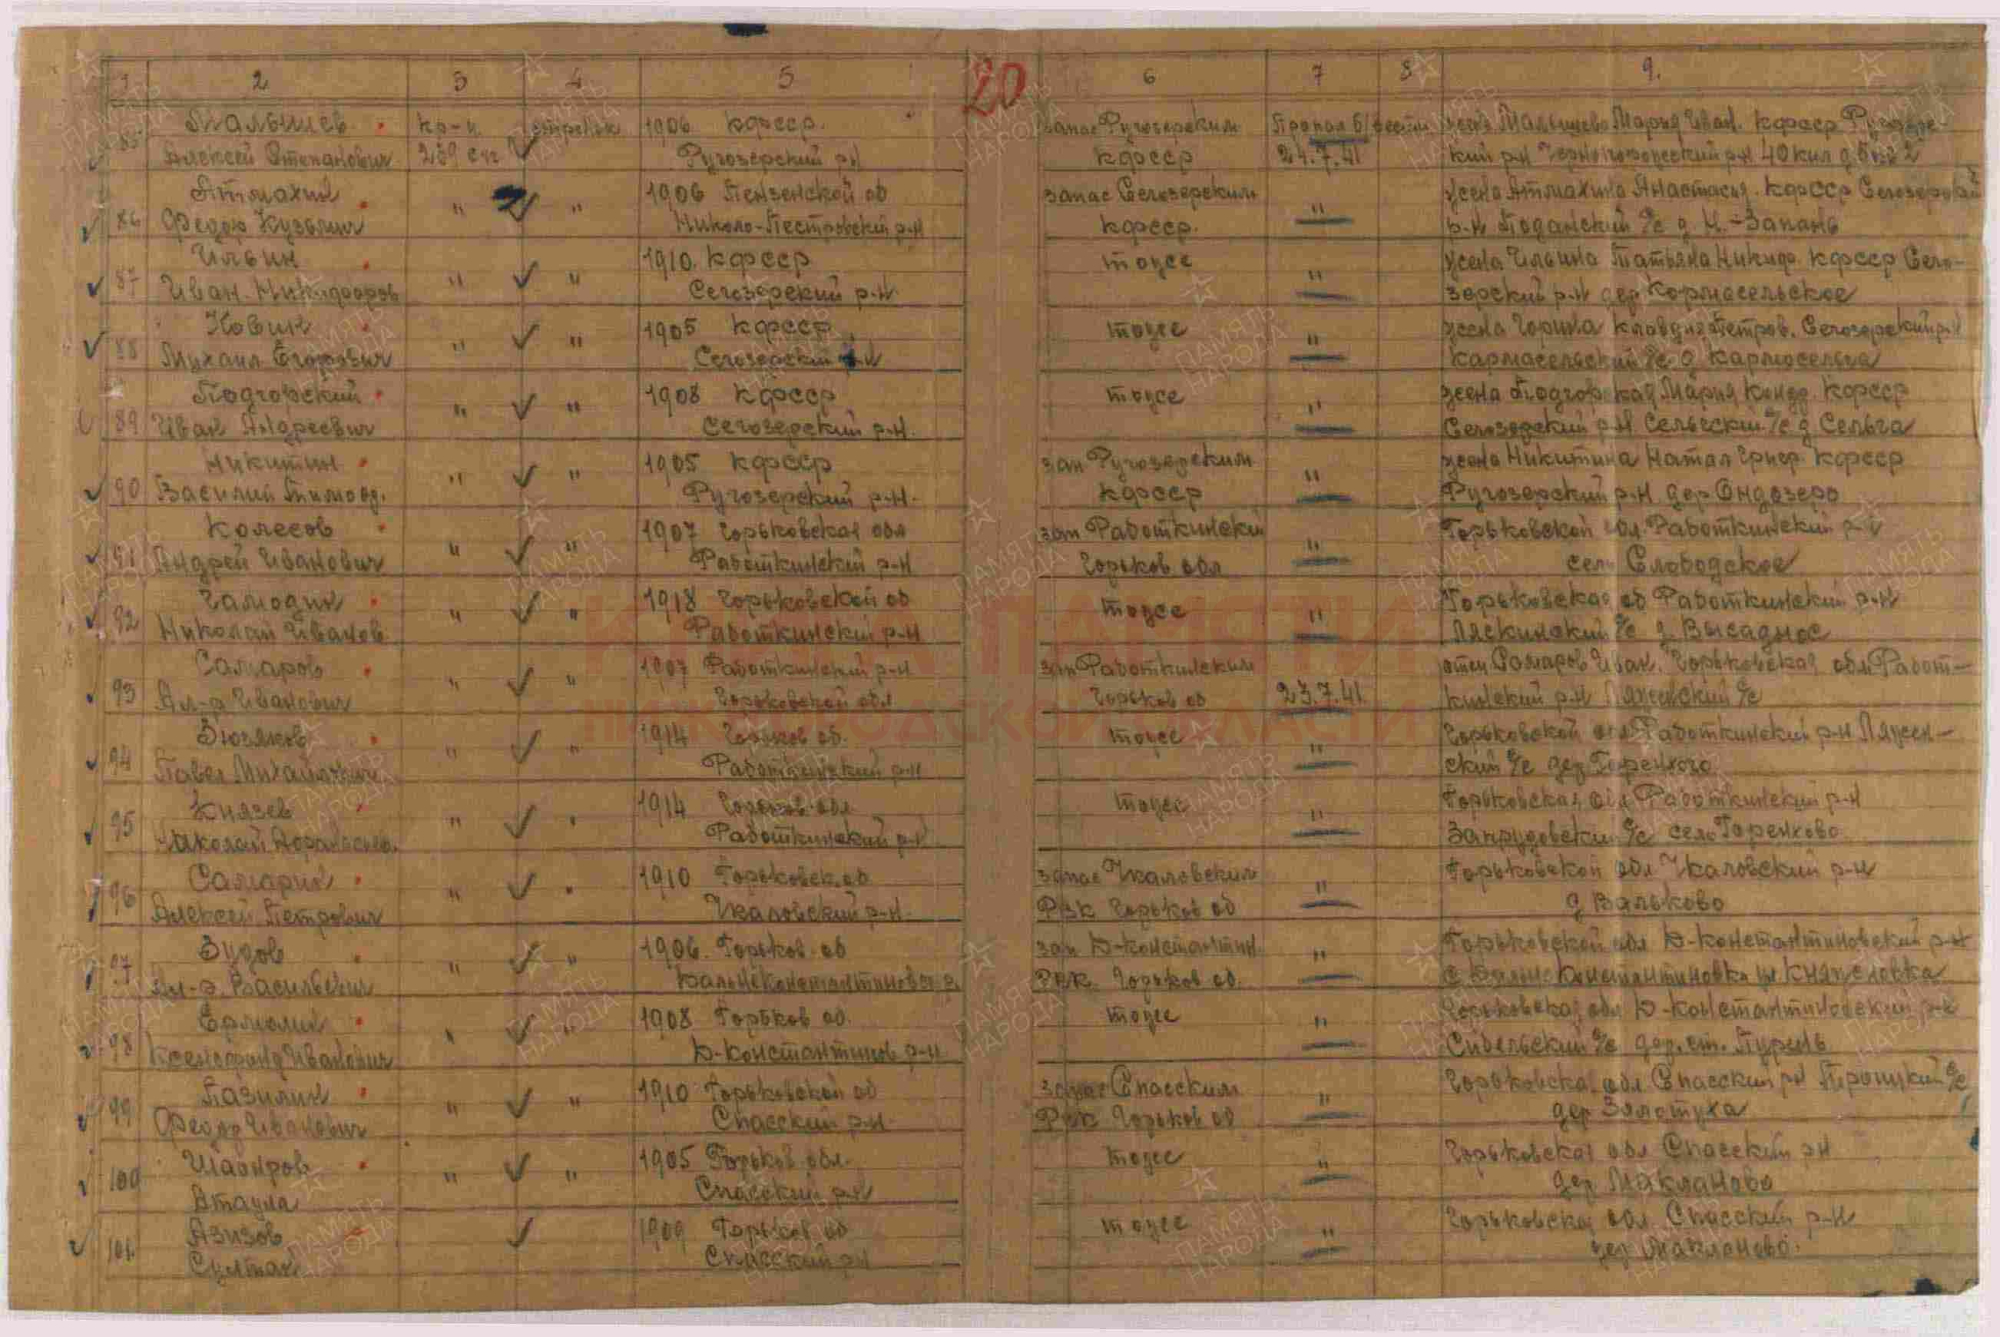 1 2 3 4 5 20 6 7 8 9.
85 Малышев кр-ц стрелок 1906 КФССР запас Ругозерским Пропал б/вести жена Малышева Мария Иван. КФССР Ругозерс-
Алексей Степанович 289 сп Ругозерский р-н КФССР 24.7.41 кий р-н
86 Атмахин " " 1906 Пензенской об запас Сегозерским " жена Атмахина Анастасья. КФССР Сегозерский
Федор Кузьмич Николо-Пестровский р-н КФССР. р-н Поданский с/с д.
87 Ильин " " 1910. КФССР тоже " жена Ильина Татьяна Никифо. КФССР Сего-
Иван Никифоров Сегозерский р-н зерский р-н дер Кормасельское
88 Новин " " 1905 КФССР тоже " жена Клавдия Петров. Сегозерский р-н
Михаил Егорович Сегозерский р-н Кармасельский с/с д Кармосельга
89 Подгорский " " 1908 КФССР тоже " жена Подгорская Мария Конд. КФССР
Иван Андреевич Сегозерский р-н. Сегозерский р-н Сельгский с/с д Сельга
90 Никитин " " 1905 КФССР зап Ругозерским " жена Никитина Натал Григор. КФССР
Василий Тимоф. Ругозерский р-н. КФССР Ругозерский р-н дер Ондозеро
91 Колесов " " 1907 Горьковская обл зап Работкинский " Горьковской обл. Работкинский р-н
Андрей Иванович Работкинский р-н Горьков обл село Слободское
92 " " 1918 Горьковской об тоже " Горьковская об Работкинский р-н
Николай Иванов Работкинский р-н с/с д Высадное
93 Самаров " " 1907 Работкинский р-н зап Работкинским отец Самаров Иван. Горьковская обл Работ-
Ал-р Иванович Горьковской обл Горьков об 23.7.41 кинский р-н с/с
94 Зюзяков " " 1914 Горьков об. тоже " Горьковской обл Работкинский р-н
Павел Михайлович Работкинский р-н ский с/с дер
95 Князев " " 1914 Горьков. обл тоже " Горьковская обл Работкинский р-н
Николай Афанасьев. Работкинский р-н Запрудовский с/с село
96 Самарин " " 1910 Горьковск. об запас Чкаловским " Горьковской обл Чкаловский р-н
Алексей Петрович Чкаловский р-н. РВК Горьков об д Вальково
97 Зудов " " 1906. Горьков. об зап Д-Константин. " Горьковской обл Д-Константиновский р-н
Ал-р. Васильевич РВК. Горьков об.
98 Ермолин " " 1908 Горьков об. тоже " Горьковская обл Д-Константиновский р-н
Ксенофонд Иванович Д-Константинов р-н с/с дер. ст. Пурень
99 Пазилин " " 1910 Горьковской об запас Спасским " Горьковска. обл Спасский р-н Троицкий с/с
Федор Иванович Спасский р-н. РВК Горьков об дер
100 Шаонров " " 1905 Горьков обл. тоже " Горьковская обл Спасский р-н
Атаула Спасский р-н дер Макланово
101. Азизов 1909 Горьков об тоже " Горьковска обл. Спасский р-н
Султан Спасский р-н дер Макланово.
КНИГА ПАМЯТИ
НИЖЕГОРОДСКОЙ ОБЛАСТИ
ПАМЯТЬ НАРОДА